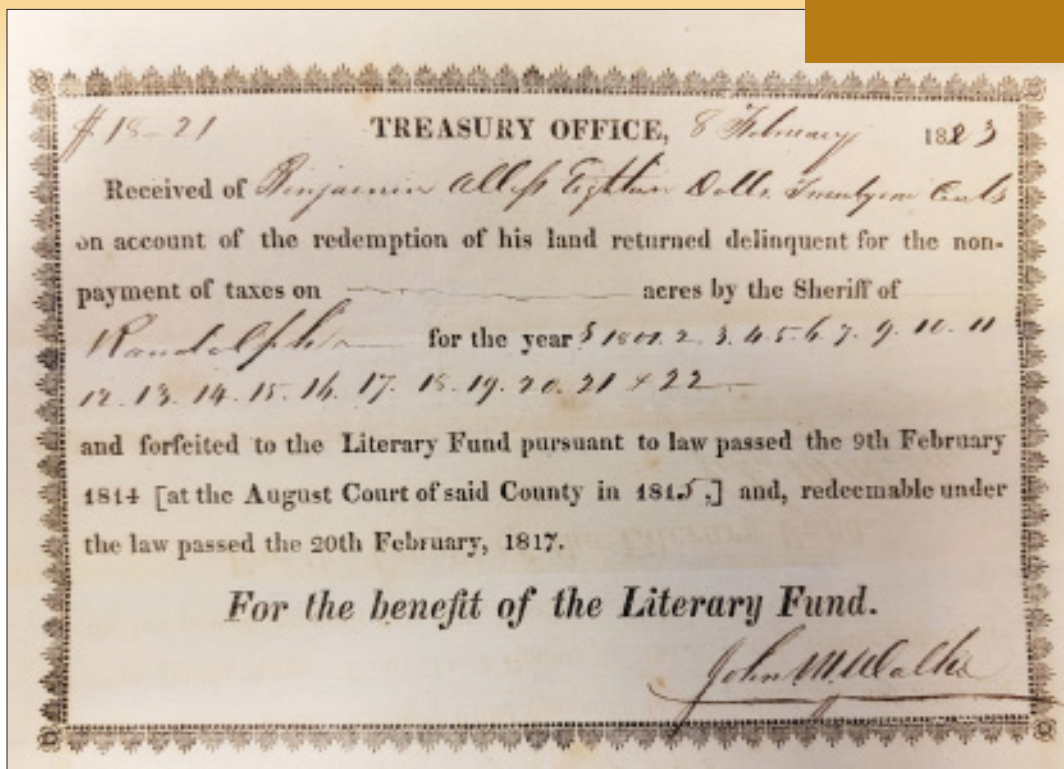 $ 18-21 TREASURY OFFICE, 8 February 1823
Received of Benjamin Eighteen Dolls. Twentyone Cents
on account of the redemption of his land returned delinquent for the non-
payment of taxes on acres by the Sheriff of
Randolph for the year s 1801. 2. 3. 4. 5. 6. 7. 9. 10. 11
12. 13. 14. 15. 16. 17. 18. 19. 20. 21 & 22
and forfeited to the Literary Fund pursuant to law passed the 9th February
1814 [at the August Court of said County in 1815,] and, redeemable under
the law passed the 20th February, 1817.
For the benefit of the Literary Fund.
John